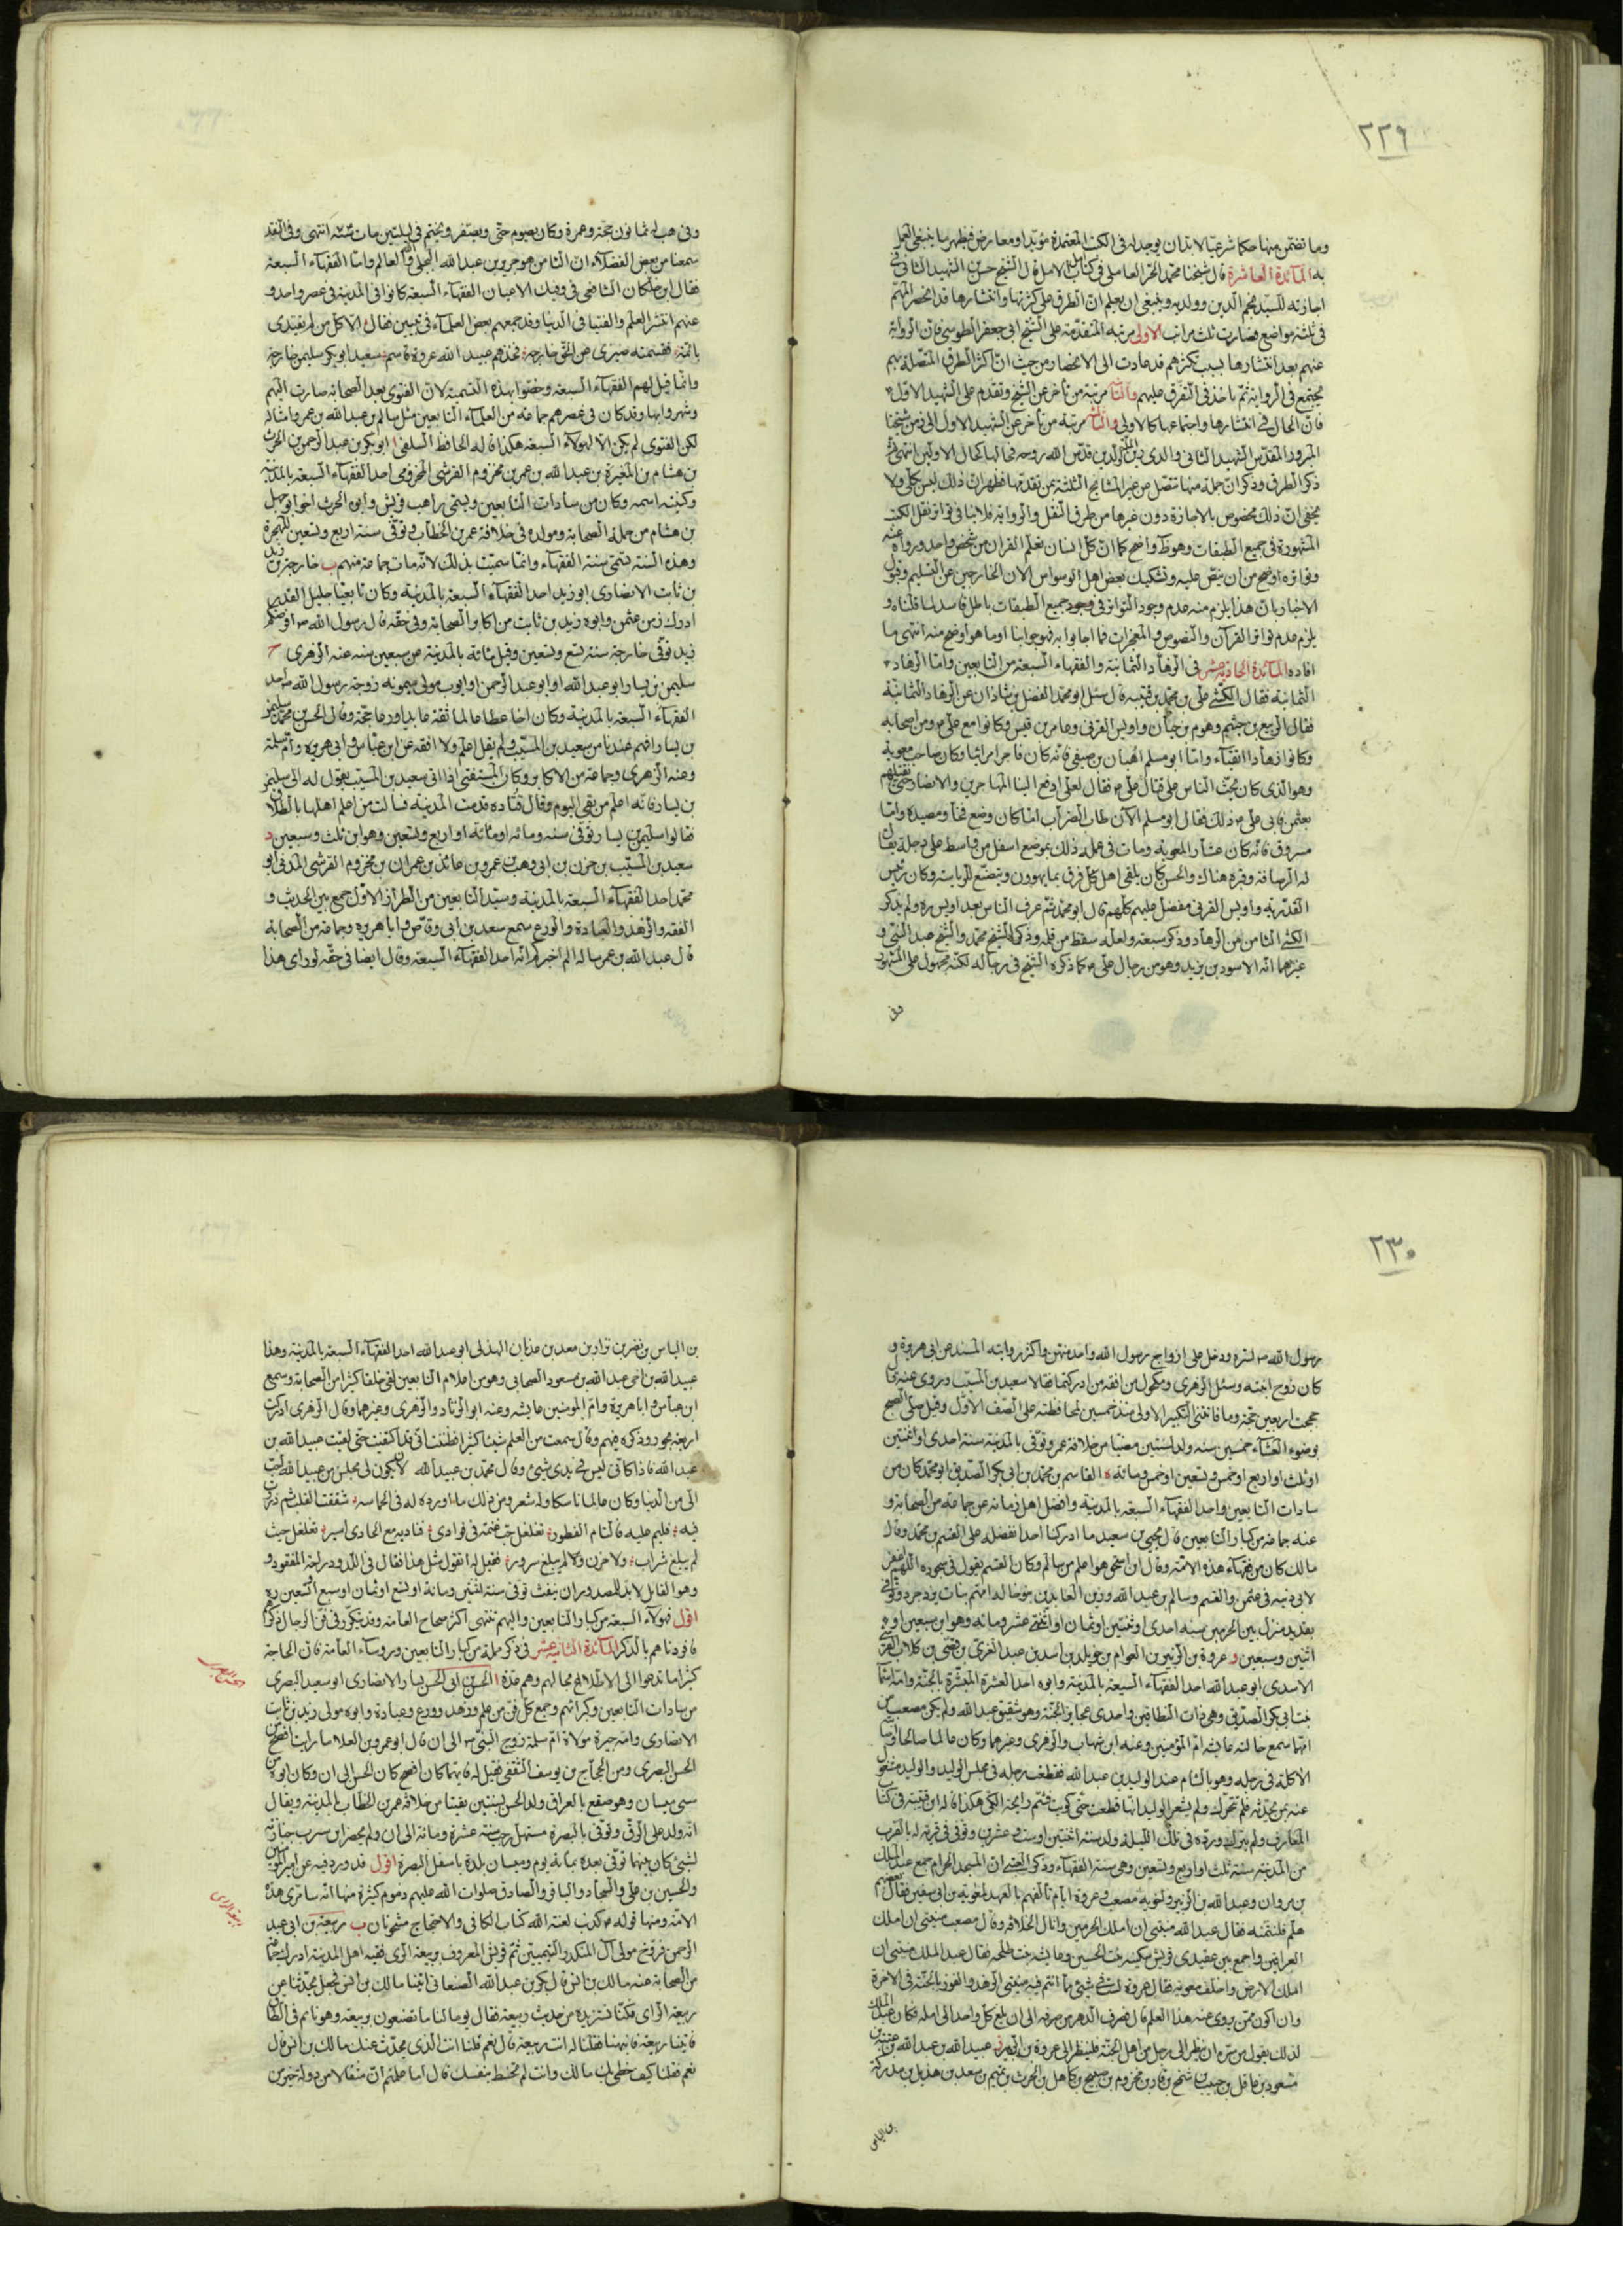 ٢٢٩
وما تضمن منها حكما شرعيا لابد ان يوجد له فى الكتب المعتمدة مؤيد او معارض فيظهر ما ينبغى العمل
به المائدة العاشرة قال شيخنا محمد الحر العاملى فى كتاب امل الامل قال الشيخ حسن بن الشهيد الثانى فى
اجازته للسيد نجم الدين وولديه وينبغى ان يعلم ان الطرق على كثرتها وانتشارها قد انحصر المهم
فى ثلثة مواضع فصارت ثلث مراتب الاولى مرتبه المتقدمة على الشيخ ابى جعفر الطوسى فان الرواية
عنهم بعد انتشارها بسبب تكثرهم قد عادت الى الانحصار من حيث ان اكثر الطرق المتصلة بهم
يجتمع فى الرواية ثم ياخذ فى التفرق عليهم والثانية مرتبة من تاخر عن الشيخ وتقدم على الشهيد الاول
فان الحال فى انتشارها واجتماعها كالاولى والثالثة مرتبة من تاخر عن الشهيد الاول الى زمن شيخنا
المبرور المقدس الشهيد الثانى والدى زين الملة والدين قدس الله روحه فحالها كحال الاولين انتهى ثم
ذكر الطرق وذكر ان جملة منها تتصل من غير المشايخ الثلثة بمن تقدمها فظهر ان ذلك ليس بكلى ولا
يخفى ان ذلك مخصوص بالاجازة دون غيرها من طرق النقل والرواية فلا ينافى تواتر نقل الكتب
المشهورة فى جميع الطبقات وهو ظاهر واضح كما ان كل انسان تعلم القران من شخص واحد ورواه عنه
وتواتره اوضح من ان ينص عليه وتشكيك بعض اهل الوسواس الان الخارجين عن التسليم وقبول
الاخبار بان هذا يلزم منه عدم وجود التواتر فى وجود جميع الطبقات باطل فاسد لما قلناه و
يلزم عدم تواتر القرآن والنصوص والمعجزات فما اجابوا به فهو جوابنا او ما هو اوضح منه انتهى ما
افاده المائدة الحادية عشر فى الزهاد الثمانية والفقهاء السبعة من التابعين واما الزهاد
الثمانية فقال الكشى على بن محمد بن قتيبة قال سئل ابو محمد الفضل بن شاذان عن الزهاد الثمانية
فقال الربيع بن خثيم وهرم بن حيان واويس القرنى وعامر بن قيس وكانوا مع على م ومن اصحابه
وكانوا زهادا اتقياء واما ابو مسلم اهبان بن صيفى فانه كان فاجرا مرائيا وكان صاحب معوية
وهو الذى كان يحث الناس على قتال على م فقال لعلى ادفع الينا المهاجرين والانصار حتى نقتلهم
بعثمن فابى على م ذلك فقال ابو مسلم الآن طاب الضراب انما كان وضع فخا ومصيدة واما
مسروق فانه كان عشارا لمعوية ومات فى عمله ذلك بموضع اسفل من واسط على دجلة يقال
له الرصافة وقبره هناك والحسن كان يلقى اهل كل فرق بما يهوون ويتصنع للرياسة وكان رئيس
القدرية واويس القرنى مفضل عليهم كلهم قال ابو محمد ثم عرف الناس بعد اويس ره ولم يذكر
الكشى الثامن من الزهاد وذكر سبعة ولعله سقط من قلمه وذكر الشيخ محمد والشيخ عبد النبى و
غيرهما انه الاسود بن يزيد وهو من رجال على م كما ذكره الشيخ فى رجاله لكنه مجهول على المشهور
وفى
وفى هب له ثمانون حجة وعمرة وكان يصوم حتى ويصفر ويختم فى ليلتين مات انتهى وفى النقد
سمعنا من بعض الفضلاء ان الثامن هو جرير بن عبد الله البجلى والله العالم واما الفقهاء السبعة
فقال ابن خلكان الشافعى فى وفيات الاعيان الفقهاء السبعة كانوا فى المدينة فى عصر واحد و
عنهم انتشر العلم والفتيا فى الدنيا وقد جمعهم بعض العلماء فى بيتين فقال الا كل من لم يقتدى
بائمة فقسمته ضيزى عن الحق خارجه فخذهم عبيد الله عروة قاسم سعيد ابوبكر سليمن خارجه
وانما قيل لهم الفقهاء السبعة وخصوا بهذه التسمية لان الفتوى بعد الصحابة صارت اليهم
وشهروا بها وقد كان فى عصرهم جماعة من العلماء التابعين مثل سالم بن عبد الله بن عمر وامثاله
لكن الفتوى لم يكن الا لهؤلاء السبعة هكذا قاله الحافظ السلفى ا ابوبكر بن عبد الرحمن بن الحرث
بن هشام بن المغيرة بن عبد الله بن عمر بن مخزوم القرشى المخزومى احد الفقهاء السبعة بالمدينة
وكنيته اسمه وكان من سادات التابعين ويسمى راهب قريش وابوه الحرث اخو ابو جهل
بن هشام من جملة الصحابة ومولده فى خلافة عمر بن الخطاب وتوفى سنة اربع وتسعين للهجرة
وهذه السنة تسمى سنة الفقهاء وانما سميت بذلك لانه مات جماعة منهم ب خارجة بن زيد
بن ثابت الانصارى ابو زيد احد الفقهاء السبعة بالمدينة وكان تابعيا جليل القدر
ادرك زمن عثمن وابوه زيد بن ثابت من اكابر الصحابة وفى حقه قال رسول الله ص افرضكم
زيد توفى خارجة سنة تسع وتسعين وقيل مائة بالمدينة عن سبعين سنة عنه الزهرى ج
سليمن بن يسار ابو عبد الله او ابو عبد الرحمن او ايوب مولى ميمونه زوجة رسول الله ص احد
الفقهاء السبعة بالمدينة وكان اخا عطا عالما ثقة عابدا ورعا حجة وقال الحسن بن محمد سليمن
بن يسار افهم عندنا من سعيد بن المسيب ولم يقل اعلم ولا افقه عن ابن عباس وابى هريره وام سلمة
وعنه الزهرى وجماعة من الاكابر وكان المستفتى اذا اتى سعيد بن المسيب يقول له الى سليمن
بن يسار فانه اعلم من بقى اليوم وقال قتاده قدمت المدينة فسالت من اعلم اهلها بالطلاق
فقالوا سليمن بن يسار توفى سنه ومائه او مائة او اربع وتسعين وهو ابن ثلث وسبعين د
سعيد بن المسيب بن حزن بن ابى وهب بن عمرو بن عائذ بن عمران بن مخزوم القرشى المدنى ابو
محمد احد الفقهاء السبعة بالمدينة وسيد التابعين من الطراز الاول جمع بين الحديث و
الفقه والزهد والعبادة والورع سمع سعد بن ابى وقاص وابا هريره وجماعة من الصحابة
قال عبد الله بن عمر ساله الم اخبركم انه احد الفقهاء السبعة وقال ايضا فى حقه لو راى هذا
٢٣٠
رسول الله ص لسره ودخل على ازواج رسول الله واخذ منهن واكثر روايته المسند عن ابى هريرة و
كان زوج ابنته وسئل الزهرى ومكحول من افقه من ادركتما فقالا سعيد بن المسيب وروى عنه قال
حججت اربعين حجة وما فاتتنى التكبير الاولى منذ خمسين لمحافظته على الصف الاول وقيل صلى الصبح
بوضوء العشاء خمسين سنه ولد لسنتين مضتا من خلافة عمر وتوفى بالمدينة سنة احدى او اثنتين
او ثلث او اربع او خمس وتسعين او خمس ومائة ه القاسم بن محمد بن ابى بكر الصديق ابو محمد كان من
سادات التابعين واحد الفقهاء السبعة بالمدينة وافضل اهل زمانه عن جماعة من الصحابة و
عنه جماعة من كبار التابعين قال يحيى بن سعيد ما ادركنا احدا نفضله على القسم بن محمد وقال
مالك كان من فقهاء هذه الامة وقال ابن اسحق هو اعلم من سالم وكان القسم يقول فى سجوده اللهم اغفر
لابى ذنبه فى عثمن والقسم وسالم بن عبد الله وزين العابدين بنو خاله امهم بنات يزدجرد وتوفى
بقديد منزل بين الحرمين سنه احدى او اثنتين او ثمان او اثنتى عشر ومائه وهو ابن سبعين او
اثنين وسبعين و عروة بن الزبير بن العوام بن خويلد بن اسد بن عبد العزى بن قصى بن كلاب القرشى
الاسدى ابو عبد الله احد الفقهاء السبعة بالمدينة وابوه احد العشرة المبشرة بالجنة وامه اسما
بنت ابى بكر الصديق وهى ذات النطاقين واحدى عجايز الجنة وهو شقيق عبد الله ولم يكن مصعب من
امهما سمع خالته عايشة ام المؤمنين وعنه ابن شهاب والزهرى وغيرهما وكان عالما صالحا واصابته
الاكلة فى رجله وهو بالشام عند الوليد بن عبد الله فقطعت رجله فى مجلس الوليد والوليد مشغول
عنه بمن يحدثه فلم يتحرك ولم يشعر الوليد انها قطعت حتى كويت فشم رايحة الكى هكذا قاله ابن قتيبة فى كتاب
المعارف ولم يترك ورده فى تلك الليلة ولد سنه اثنتين او ست وعشرين وتوفى فى قرية له بالقرب
من المدينة سنة ثلث او اربع وتسعين وهى سنة الفقهاء وذكر العتبى ان المسجد الحرام جمع عبد الملك
بن مروان وعبد الله بن الزبير واخويه مصعب وعروة ايام تالفهم بالعهد لمعوية بن ابى سفين فقال بعضهم
هلم فلنتمنه فقال عبد الله منيتى ان املك الحرمين وانال الخلافة وقال مصعب منيتى ان املك
العراقين واجمع بين عقيدى قريش سكينه بنت الحسين وعايشه بنت طلحه فقال عبد الملك منيتى ان
املك الارض واخلف معوية فقال عروة لست فى شيئ مما انتم فيه منيتى الزهد والفوز بالجنة فى الاخرة
وان اكون ممن يروى عنه هذا العلم قال فصرف الدهر من صرفه الى ان بلغ كل واحد الى امله فكان عبد الملك
لذلك يقول من سره ان ينظر الى رجل من اهل الجنة فلينظر الى عروة بن الزبير ز عبيد الله بن عبد الله بن عتبة بن
مسعود بن غافل بن حبيب بن شمخ بن فار بن مخزوم بن صبيح بن كاهل بن الحرث بن تميم بن سعد بن هذيل بن مدركة
بن الياس
بن الياس بن نضر بن نزار بن معد بن عدنان الهذلى ابو عبد الله احد الفقهاء السبعة بالمدينة وهذا
عبيد الله بن اخى عبد الله بن مسعود الصحابى وهو من اعلام التابعين لقى خلقا كثيرا من الصحابة وسمع
ابن عباس وابا هريرة وام المومنين عايشه وعنه ابو الزناد والزهرى وغيرهما وقال الزهرى ادركت
اربعة بحور وذكره فيهم وقال سمعت من العلم شيئا كثيرا فظننت انى قد اكتفيت حتى لقيت عبيد الله بن
عبد الله فاذا كانى ليس فى يدى شيئ وقال محمد بن عبيد الله لان يكون لى مجلس من عبيد الله احب
الى من الدنيا وكان عالما ناسكا وله شعر ومن ذلك ما اورده له فى الحماسه شققت القلب ثم ذررت
فيه فليم عليه فالتام الفطور تغلغل حب عثمة فى فوادى فباديه مع الخافى يسير تغلغل حيث
لم يبلغ شراب ولا حزن ولا لم يبلغ سرور فقيل له اتقول مثل هذا فقال فى اللدود راحة المفقود و
وهو القايل لابد للمصدور ان ينفث توفى سنة اثنتين ومائة او تسع او ثمان او سبع او تسعين ره
اقول فهولاء السبعة من كبار التابعين واليهم تنتهى اكثر صحاح العامة وقد يتكرر فى فن الرجال ذكرهم
فافردناهم بالذكر المائدة الثانية عشر فى ذكر جملة من كبار التابعين وروساء العامة فان الحاجة
كثيرا ما تدعوا الى الاطلاع بحالهم وهم عدة ا الحسن بن ابى الحسن يسار الانصارى ابو سعيد البصرى
من سادات التابعين وكبرائهم وجمع كل فن من علم وزهد وورع وعبادة وابوه مولى زيد بن ثابت
الانصارى وامه خيرة مولاة ام سلمة زوج النبى ص الى ان قال ابو عمرو بن العلاء ما رايت افصح من
الحسن البصرى ومن الحجاج بن يوسف الثقفى فقيل له فايهما كان افصح كان الحسن الى ان وكان ابوه من
سبى ميسان وهو صقع بالعراق ولد الحسن لسنتين بقيتا من خلافة عمر بن الخطاب بالمدينة ويقال
انه ولد على الرق وتوفى بالبصرة مستهل رجب سنة عشرة ومائة الى ان ولم يحضر ابن سيرين جنازته
لشيئ كان بينهما توفى بعده بمائة يوم وميسان بلدة باسفل البصرة اقول قد ورد فيه عن امير المومنين
والحسين بن على والسجاد والباقر والصادق صلوات الله عليهم ذموم كثيرة منها انه سامرى هذه
الامة ومنها قوله م كذب لعنة الله كتاب الكافى والاحتجاج مشحونان ب ربيعة بن ابى عبد
الرحمن فروخ مولى آل المنكدر التيميين تيم قريش المعروف بربيعة الراى فقيه اهل المدينة ادرك جماعة
من الصحابة عنه مالك بن انس قال بكر بن عبد الله الصنعانى اتينا مالك بن انس فجعل يحدثنا عن
ربيعة الراى فكنا نستزيده من حديث ربيعة فقال يوما لنا ما تصنعون بربيعة وهو نائم فى الطاق
فاتينا ربيعة فانبهناه فقلنا له انت ربيعة قال نعم قلنا انت الذى يحدث عنك مالك بن انس قال
نعم فقلنا كيف حظى بك مالك وانت لم تحظ بنفسك قال اما علمتم ان مثقالا من دولة خير من
حسن البصرى
ربيعة الراى